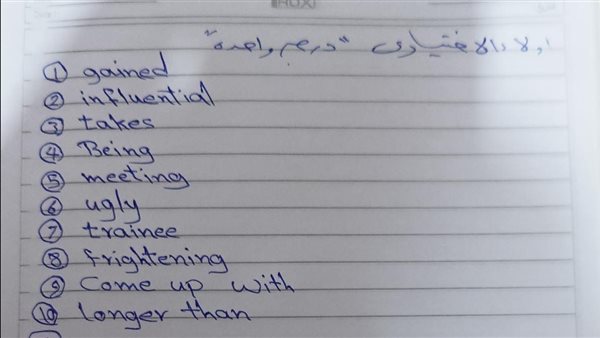 اولا: الاختيارى "درجة واحدة"
① gained
② influential
③ takes
④ Being
⑤ meeting
⑥ ugly
⑦ trainee
⑧ frightening
⑨ Come up with
⑩ longer than